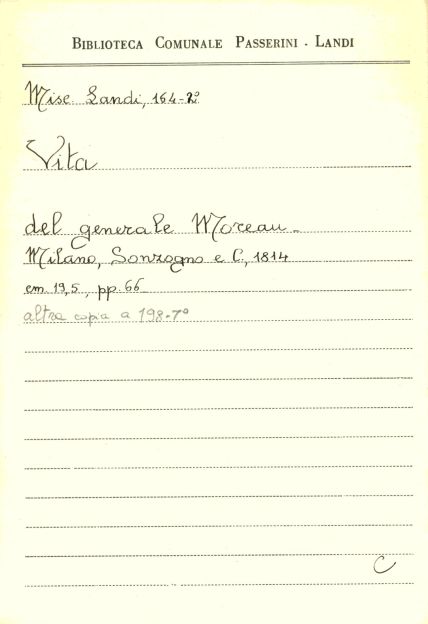 BIBLIOTECA COMUNALE PASSERINI - LANDI
Misc. Landi, 164-2º
Vita
del generale Moreau -
Milano, Sonzogno e C., 1814
cm. 19,5, pp. 66
altra copia a 198-7º
C